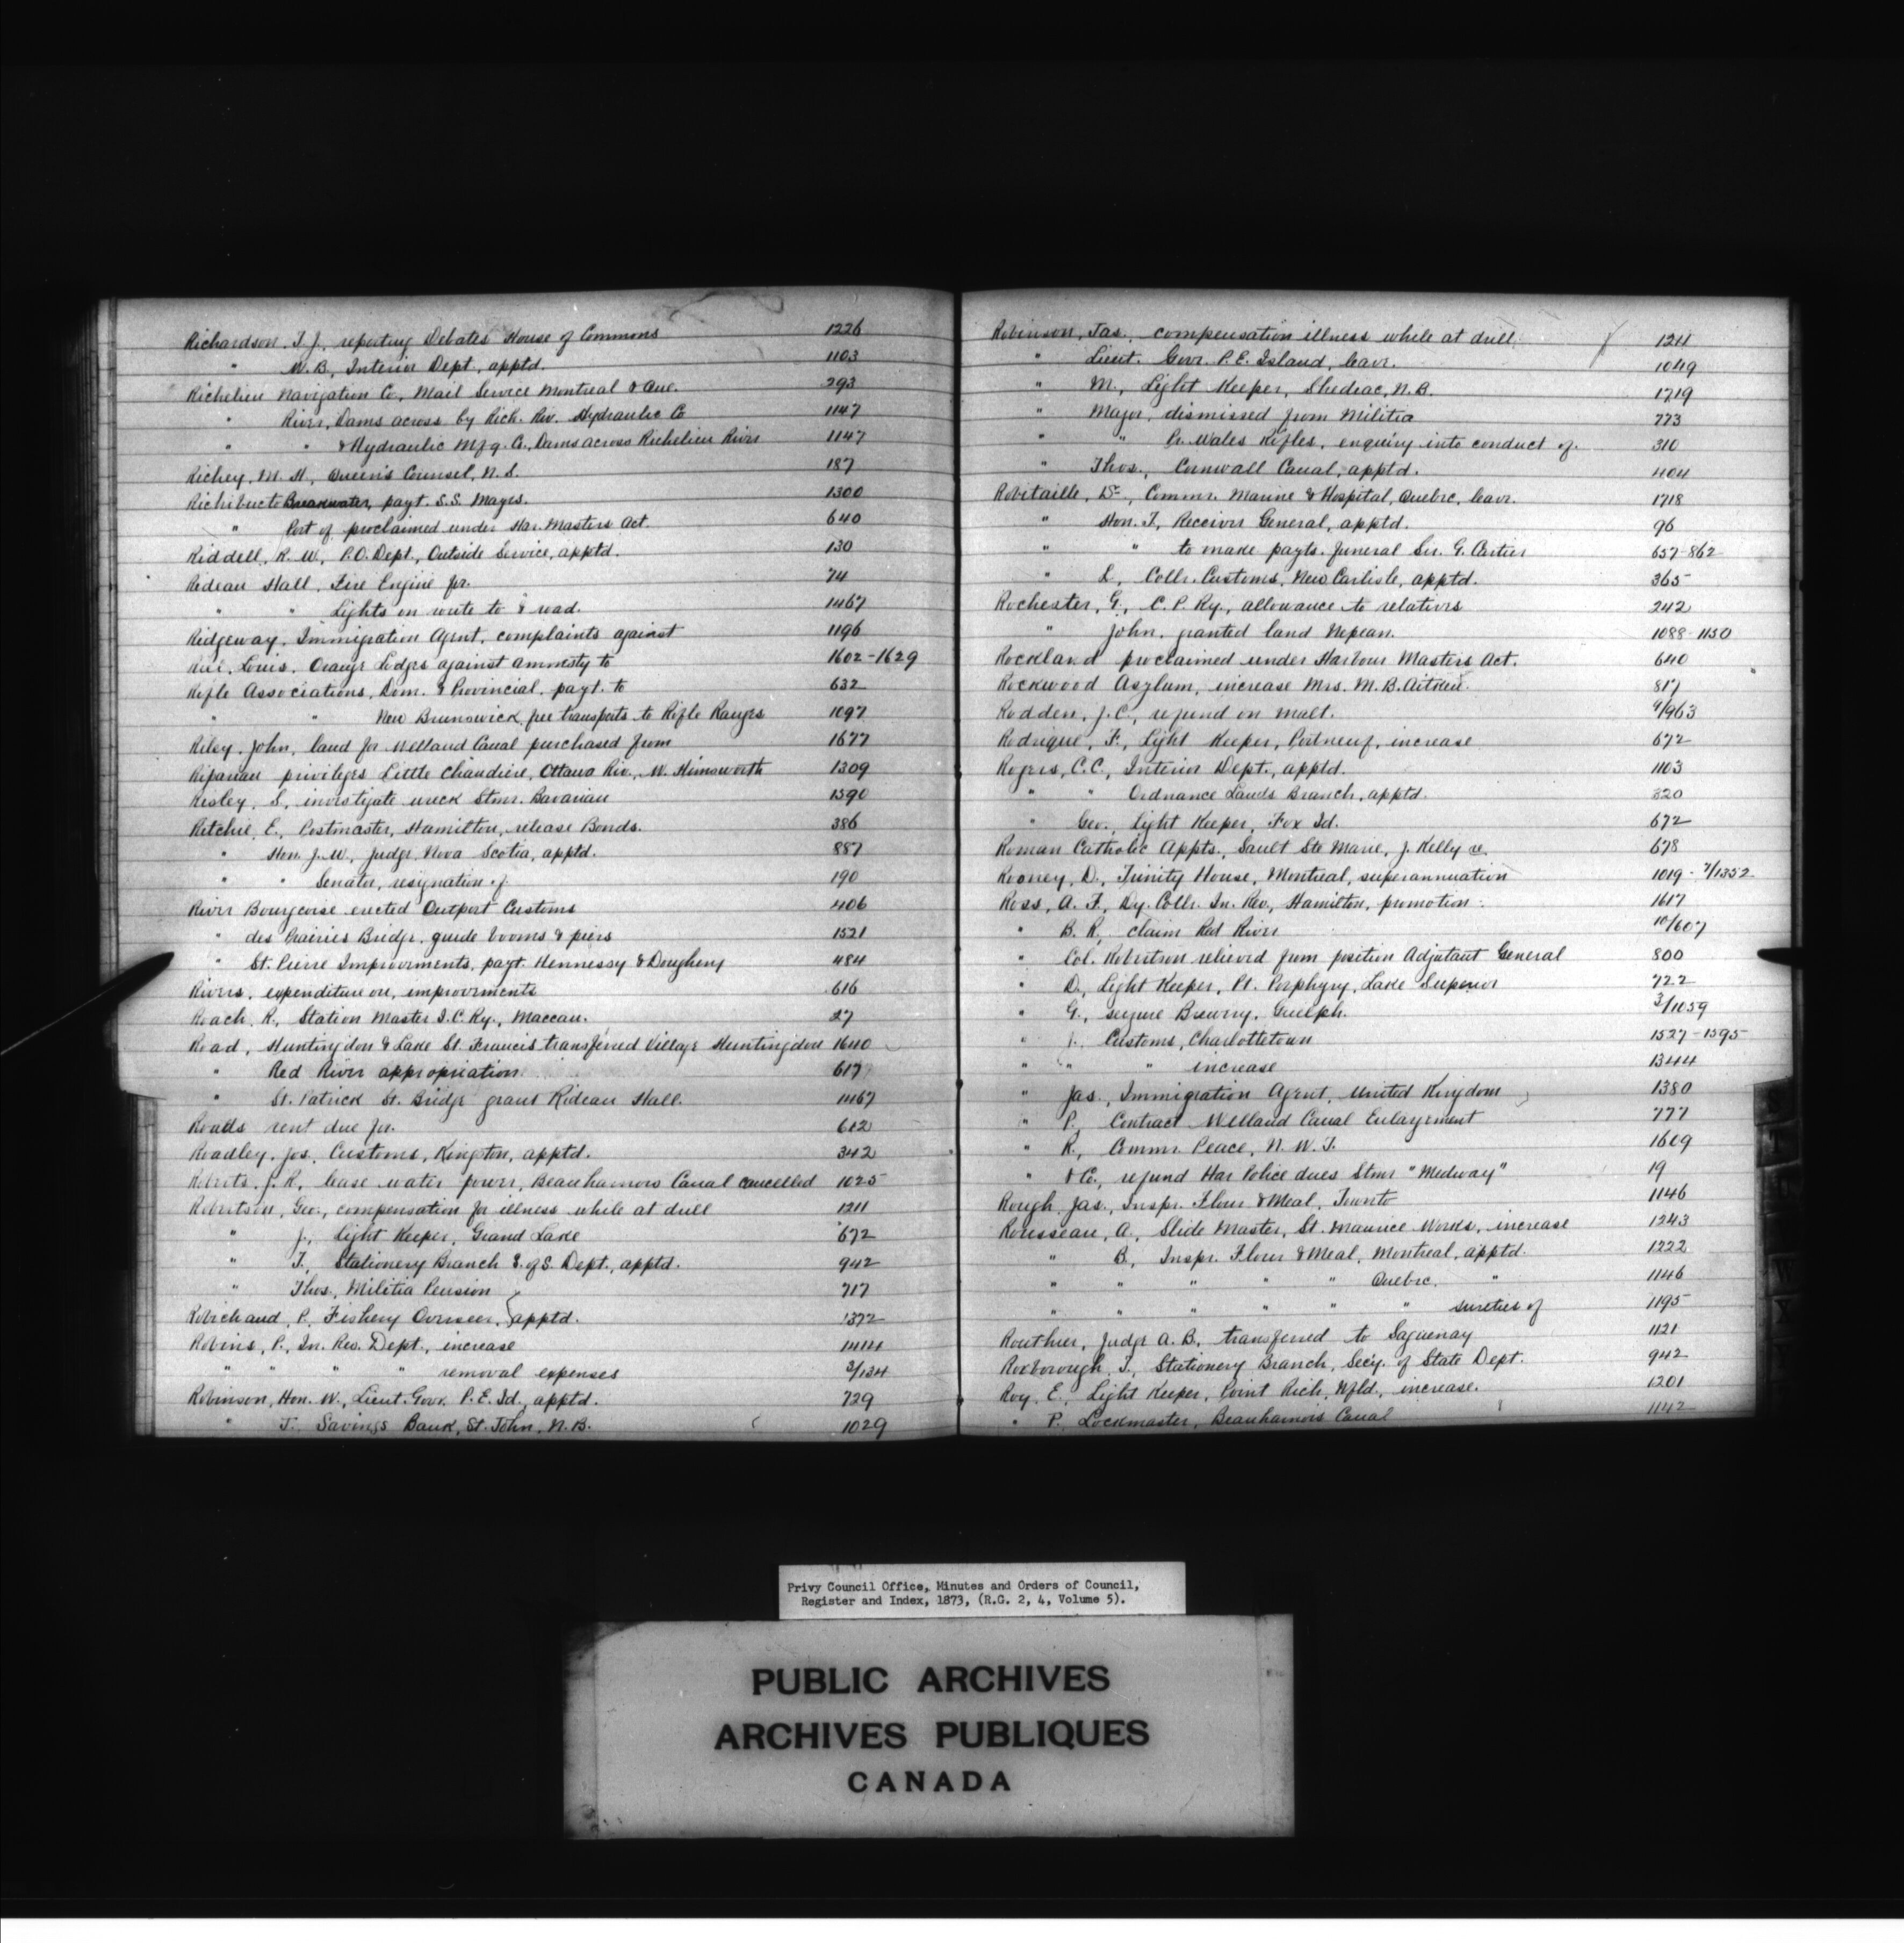 Richardson, T. J., reporting Debates House of Commons 1226
" W. B., Interior Dept., apptd. 1103
Richelieu Navigation Co., Mail Service Montreal & Que. 293
" River, Dams across by Rich. Riv. Hydraulic Co 1147
" " & Hydraulic Mfg. Co., Dams across Richelieu River 1147
Richey, M. H., Queen's Counsel, N. S. 187
Richibucto Breakwater, payt. S.S. Mayes. 1300
" Port of proclaimed under Har. Masters Act. 640
Riddell, R. W., P.O. Dept., Outside Service, apptd. 130
Rideau Hall, Fire Engine for. 74
" " Lights on route to & road. 1467
Ridgeway, Immigration Agent, complaints against 1196
Riel, Louis, Orange Lodges against amnesty to 1602-1629
Rifle Associations, Dom. & Provincial, payt. to 632
" " New Brunswick, free transports to Rifle Ranges 1097
Riley, John, land for Welland Canal purchased from 1677
Riparian privileges Little Chaudiere, Ottawa Riv., W. Himsworth 1309
Risley, S., investigate wreck Stmr. Bavarian 1390
Ritchie, E., Postmaster, Hamilton, release Bonds. 386
" Hon. J. W., Judge, Nova Scotia, apptd. 887
" " Senator, resignation of 190
River Bourgeoise erected Outport Customs 406
" des Prairies Bridge, guide booms & piers 1521
" St. Pierre Improvements, payt. Hennessy & Dougheny 484
Rivers, expenditure on, improvements 616
Roach, R., Station Master I.C. Ry., Maccan. 27
Road, Huntingdon & Lake St. Francis transferred Village Huntingdon 1640
" Red River appropriation 617
" St. Patrick St. Bridge grant Rideau Hall. 1467
Roads rent due for. 612
Roadley, Jos., Customs, Kingston, apptd. 342
Roberts, J. R., lease water power, Beauharnois Canal cancelled 1025
Robertson, Geo., compensation for illness while at drill 1211
" J., Light Keeper, Grand Lake 672
" T., Stationery Branch S. of S. Dept., apptd. 942
" Thos., Militia Pension 717
Robichaud, P., Fishery Overseer, apptd. 1372
Robins, P., In. Rev. Dept., increase 1414
" " " " removal expenses 3/134
Robinson, Hon. W., Lieut. Govr. P. E. Id., apptd. 729
" T. Savings Bank, St. John, N. B. 1029
Robinson, Jas., compensation illness while at drill 1211
" Lieut. Govr. P. E. Island, leave. 1049
" M., Light Keeper, Shediac, N. B. 1719
" Major, dismissed from Militia 773
" " Pr. Wales Rifles, enquiry into conduct of. 310
" Thos., Cornwall Canal, apptd. 404
Robitaille, Dr., Commr. Marine & Hospital, Quebec, leave. 1718
" Hon. T., Receiver General, apptd. 96
" " to make payts. funeral Sir G. Cartier 657-862
" L., Collr. Customs, New Carlisle, apptd. 365
Rochester, G., C. P. Ry., allowance to relatives 242
" John, granted land Nepean. 1088-1150
Rockland proclaimed under Harbour Masters Act. 640
Rockwood Asylum, increase Mrs. M. B. Aitken. 817
Rodden, J. C., refund on malt. 9/963
Rodrigue, F., Light Keeper, Portneuf, increase 672
Rogers, C. C., Interior Dept., apptd. 1103
" " Ordnance Lands Branch, apptd. 320
" Geo., Light Keeper, Fox Id. 672
Roman Catholic Appts., Sault Ste Marie, J. Kelly re. 678
Rooney, D., Trinity House, Montreal, superannuation 1019 - 7/1352
Ross, A. F., Dy. Collr. In. Rev., Hamilton, promotion 1617
" B. R., claim Red River 10/607
" Col. Robertson relieved from position Adjutant General 800
" D., Light Keeper, Pt. Porphyry, Lake Superior 722
" G., seizure Brewery, Guelph. 3/1059
" J., Customs, Charlottetown 1527-1595
" " " increase 1344
" Jas., Immigration Agent, United Kingdom 1380
" P., Contract Welland Canal Enlargement 777
" R., Commr. Peace, N. W. T. 1609
" & Co., refund Har. Police dues Stmr "Medway" 19
Rough, Jas., Inspr. Flour & Meal, Toronto 1146
Rousseau, A., Slide Master, St. Maurice Works, increase 1243
" B., Inspr. Flour & Meal, Montreal, apptd. 1222
" " " " " Quebec. " 1146
" " " " " " sureties of 1195
Routhier, Judge A. B., transferred to Saguenay 1121
Roxborough, T., Stationery Branch, Secy. of State Dept. 942
Roy, E., Light Keeper, Point Rich, Nfld., increase. 1201
" P., Lockmaster, Beauharnois Canal 1142
Privy Council Office, Minutes and Orders of Council,
Register and Index, 1873, (R.G. 2, 4, Volume 5).
PUBLIC ARCHIVES
ARCHIVES PUBLIQUES
CANADA